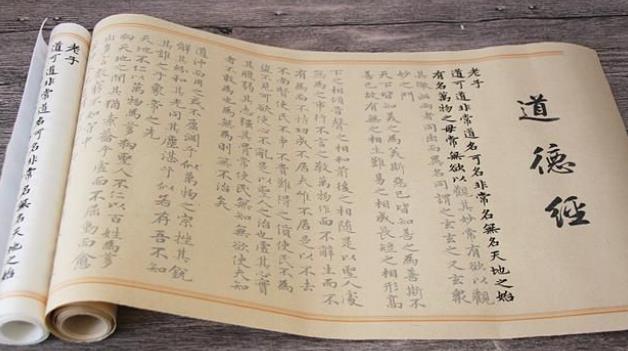 道德經
老子
道可道非常道名可名非常名無名天地之始
有名萬物之母常無欲以觀其妙常有欲以觀
其徼此兩者同出而異名同謂之玄玄之又玄衆
妙之門
天下皆知美之為美斯惡已皆知善之為善斯不
善已故有無之相生難易之相成長短之相形高
下之相傾音聲之相和前後之相隨是以聖人處
無為之事行不言之教萬物作而不辭生而不
有為而不恃功成不居夫惟不居是以不去
不尚賢使民不爭不貴難得之貨使民不為
盜不見可欲使心不亂是以聖人之治也虛其心實
其腹弱其志強其骨常使民無知無欲使夫知
者不敢為也為無為則無不治矣
道沖而用之或不盈淵乎似萬物之宗挫其銳
解其紛和其光同其塵湛乎似若存吾不知
其誰之子象帝之先
天地不仁以萬物為芻狗聖人不仁以百姓為芻
狗天地之間其猶橐籥乎虛而不屈動而愈
出多言數窮不如守中
老子
道可道非常道名可名非常名無名天地之始